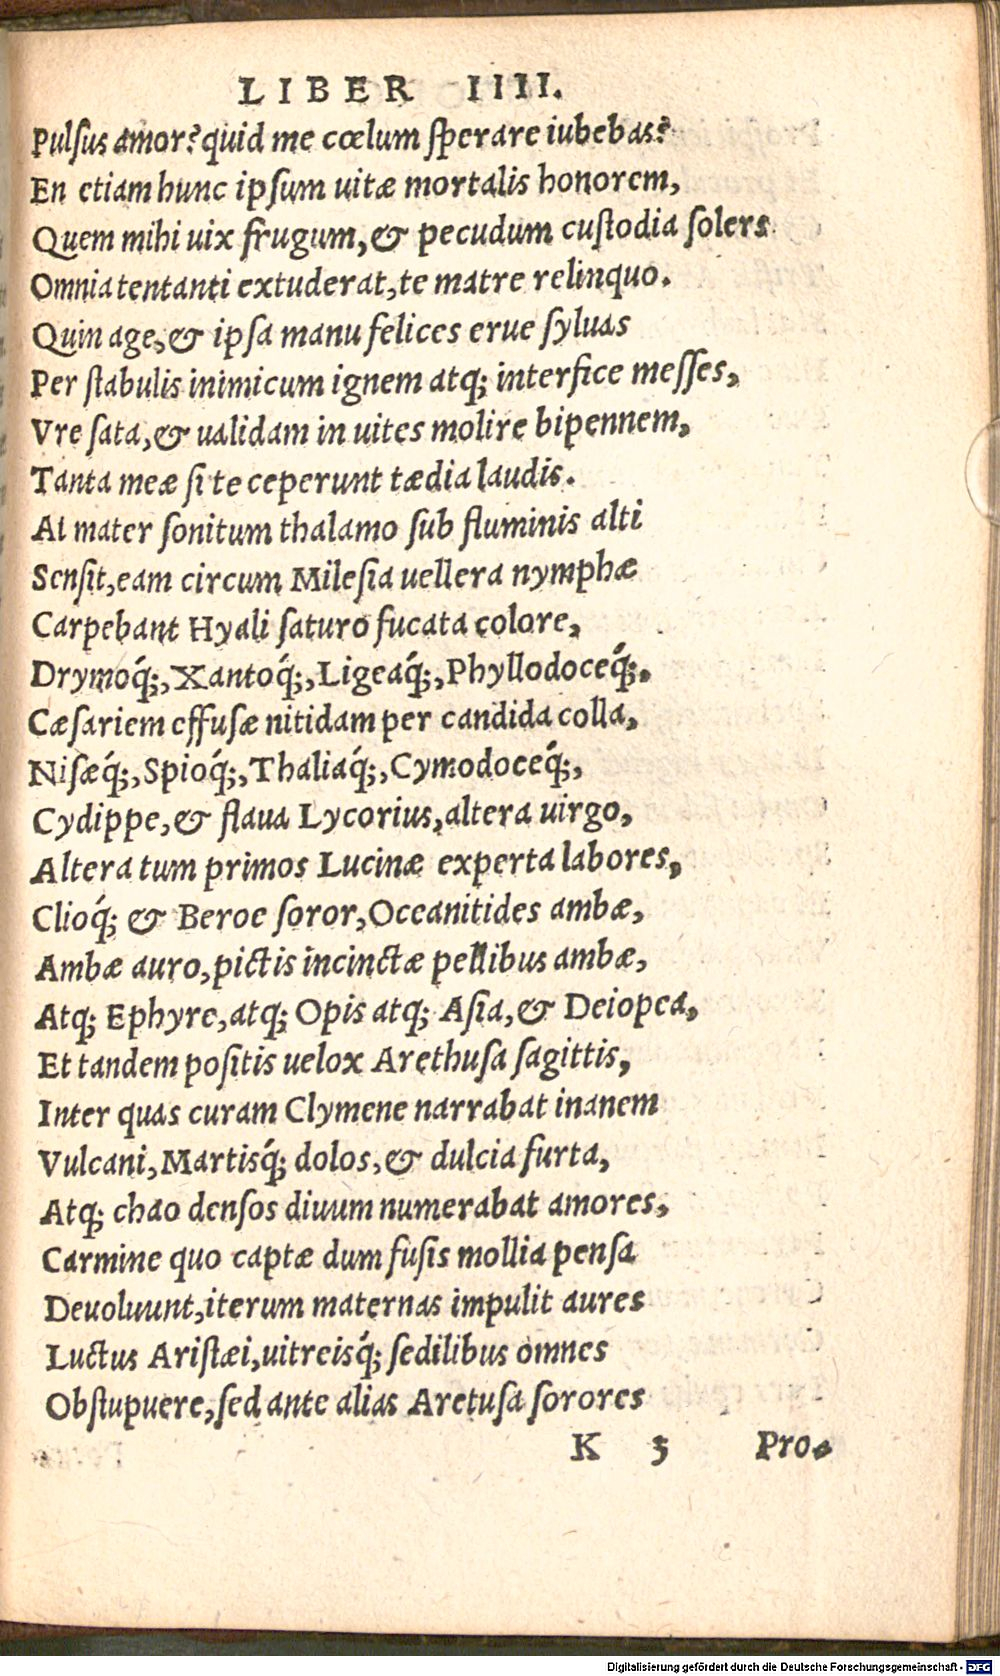 LIBER IIII.
Pulſus amor? quid me cœlum ſperare iubebas?
En etiam hunc ipſum uitæ mortalis honorem,
Quem mihi uix frugum, & pecudum cuſtodia ſolers
Omnia tentanti extuderat, te matre relinquo.
Quin age, & ipſa manu felices erue ſyluas
Per ſtabulis inimicum ignem atq; interfice meſſes,
Vre ſata, & ualidam in uites molire bipennem,
Tanta meæ ſi te ceperunt tædia laudis.
At mater ſonitum thalamo ſub fluminis alti
Senſit, eam circum Mileſia uellera nymphæ
Carpebant Hyali ſaturo fucata colore,
Drymoq́;, Xantoq́;, Ligeaq́;, Phyllodoceq́;.
Cæſariem effuſæ nitidam per candida colla,
Niſæq́;, Spioq́;, Thaliaq́;, Cymodoceq́;,
Cydippe, & flaua Lycorius, altera uirgo,
Altera tum primos Lucinæ experta labores,
Clioq́; & Beroe ſoror, Oceanitides ambæ,
Ambæ auro, pictis incinctæ pellibus ambæ,
Atq; Ephyre, atq; Opis atq; Aſia, & Deiopea,
Et tandem poſitis uelox Arethuſa ſagittis,
Inter quas curam Clymene narrabat inanem
Vulcani, Martisq́; dolos, & dulcia furta,
Atq; chao denſos diuum numerabat amores,
Carmine quo captæ dum fuſis mollia penſa
Deuoluunt, iterum maternas impulit aures
Luctus Ariſtæi, uitreisq́; ſedilibus omnes
Obſtupuere, ſed ante alias Aretuſa ſorores
K 3 Pro-
Digitalisierung gefördert durch die Deutsche Forschungsgemeinschaft - DFG